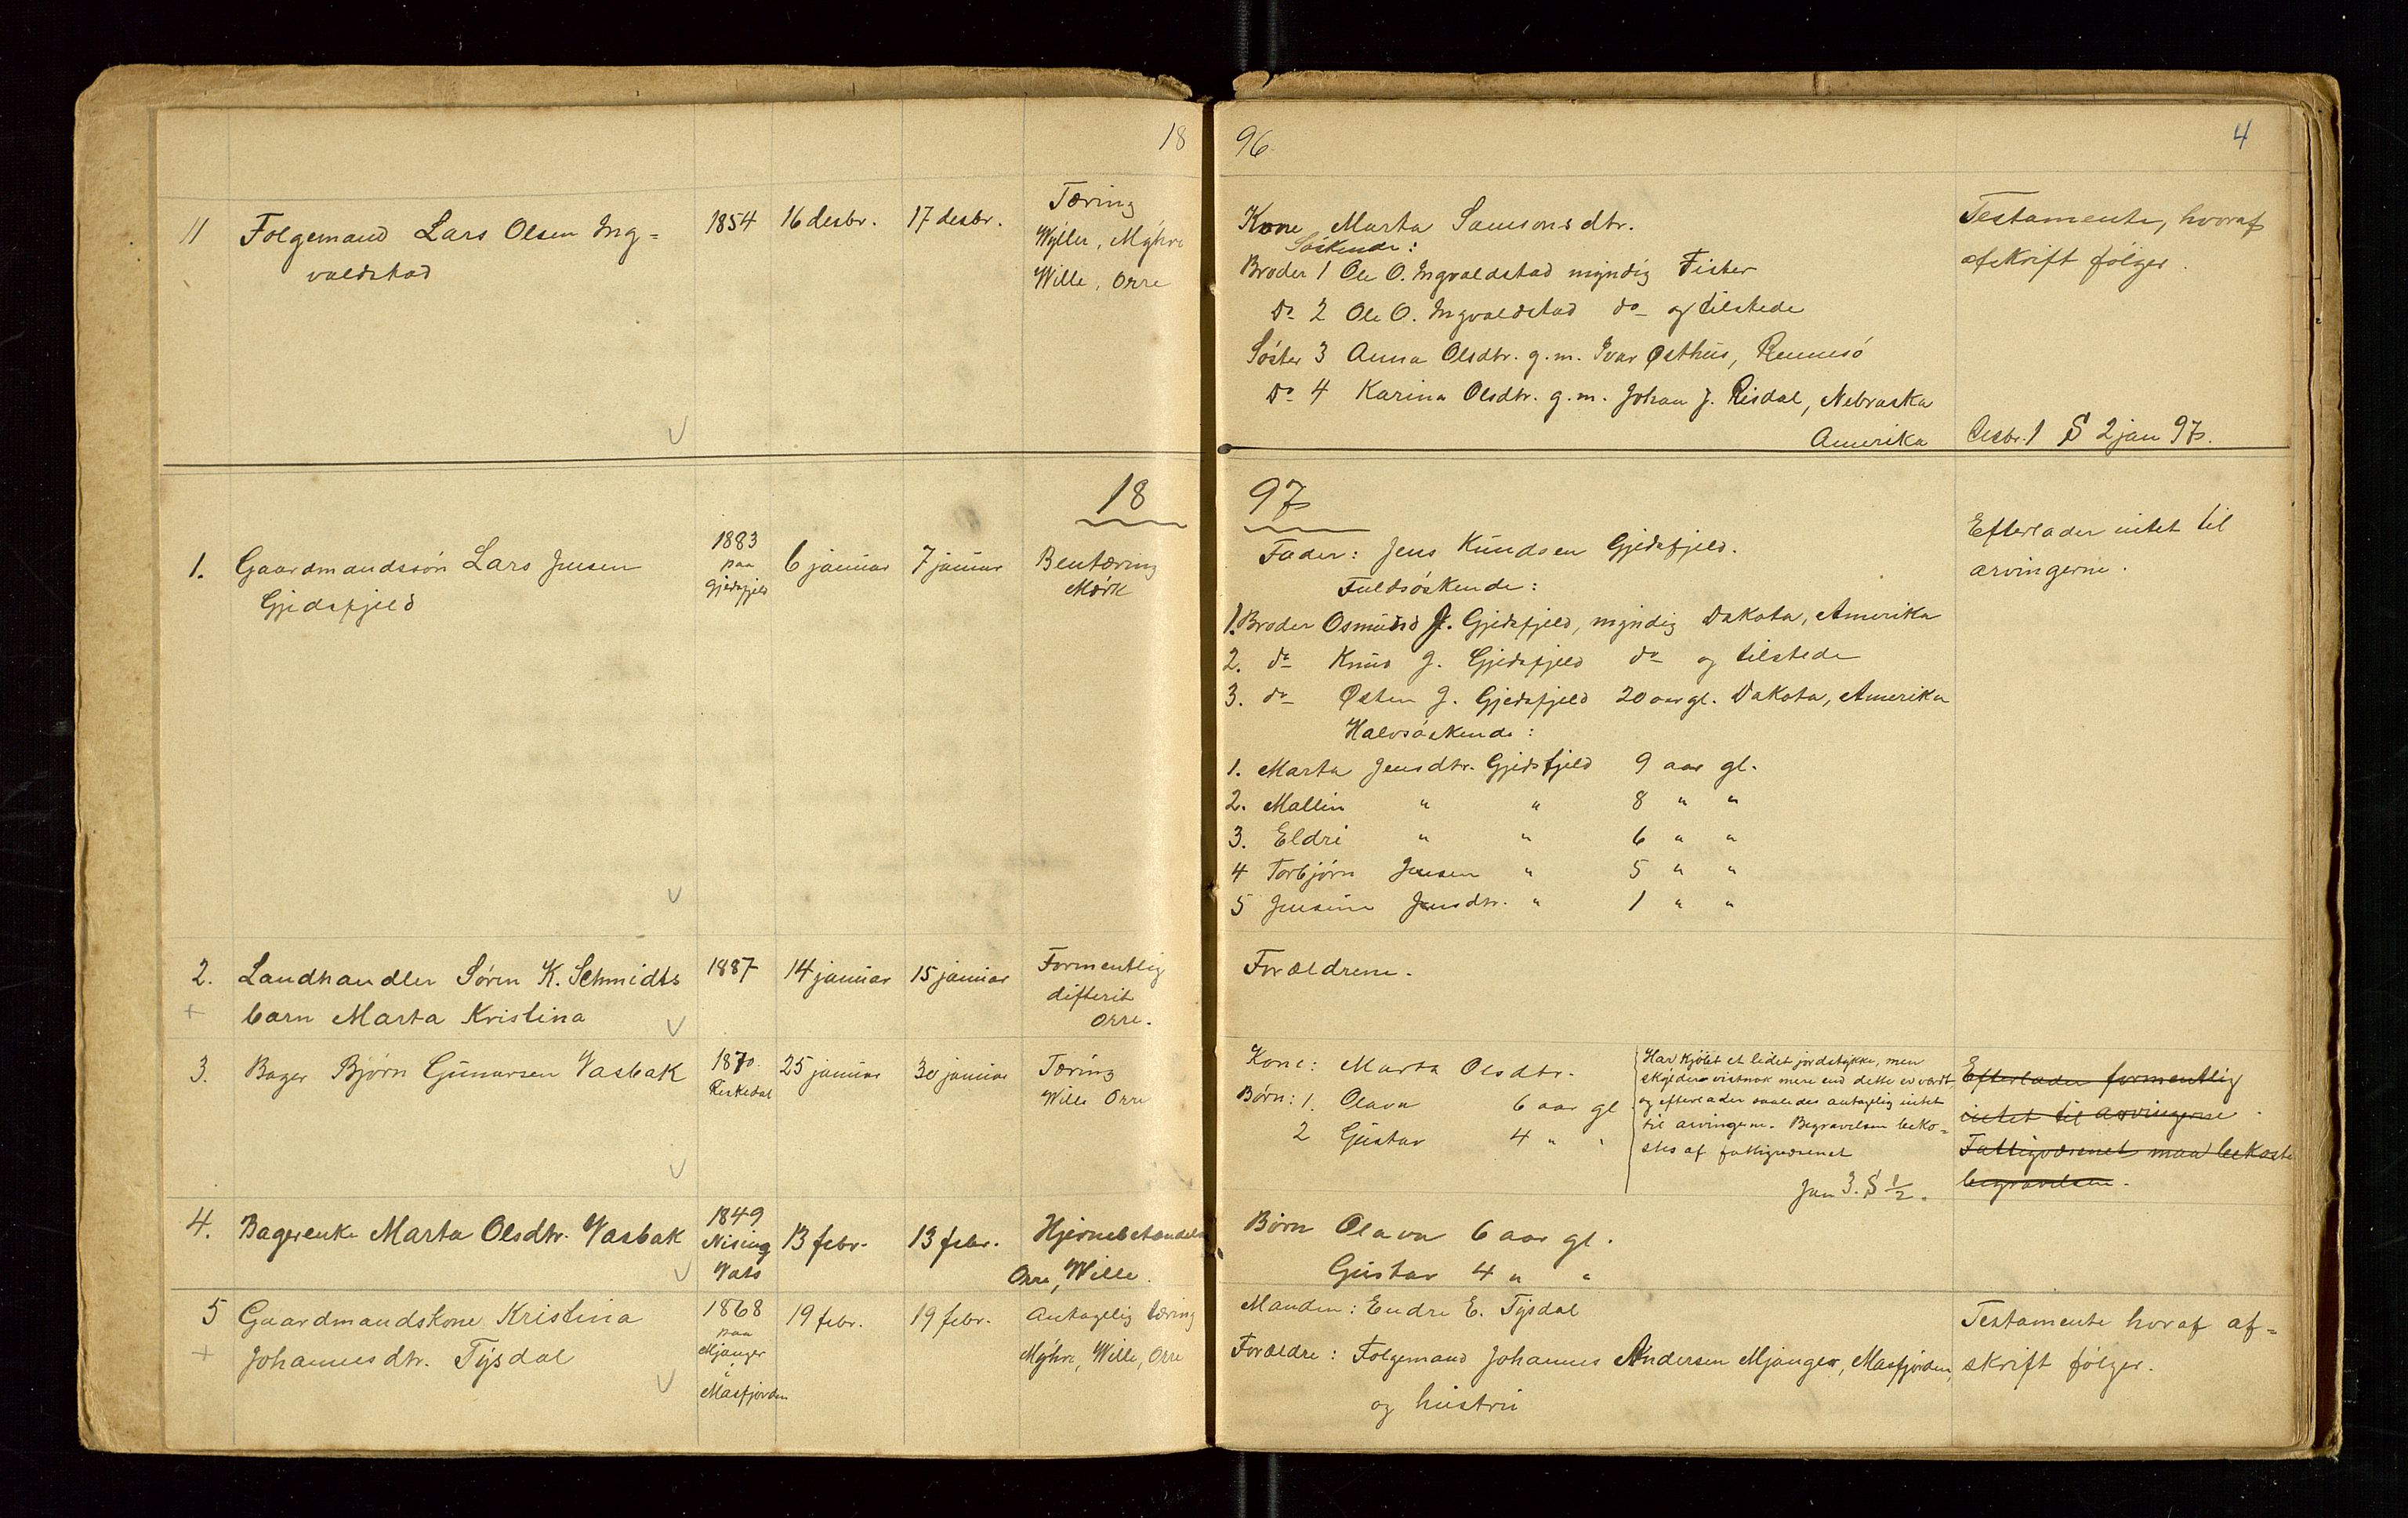 18
11 Folgemand Lars Olsen Ing=
valdstad
1854
16 desbr.
17 desbr.
Tæring
Wyller, Myhre
Wille, Orre
18
1. Gaardmandssøn Lars Jensen
Gjedsfjeld
1883
paa
Gjedsfjeld
6 januar
7 januar
Bentæring
Mørk
2. Landhandler Søren K. Schmidts
+ barn Marta Kristina
1887
14 januar
15 januar
Formentlig
difterit
Orre.
3. Bager Bjørn Gunarsen Vasbak
1870.
Riskedal
25 januar
30 januar
Tæring
Wille Orre
4. Bagerenke Marta Olsdtr. Vasbak
1849
Nising
Vats
13 febr.
13 febr.
Hjernebetændelse
Orre, Wille.
5 Gaardmandskone Kristina
+ Johannesdtr. Tysdal
1868
paa
Mjanger
i
Masfjorden
19 febr.
19 febr.
Antagelig tæring
Myhre, Wille, Orre
96
4
Kone Marta Samsonsdtr.
Søskende:
Broder 1 Ole O. Ingvaldstad myndig Fister
Do 2 Ole O. Ingvaldstad do og tilstede
Søster 3 Anna Olsdtr. g.m. Ivar Østhus, Rennesø
Do 4 Karina Olsdtr. g.m. Johan J. Risdal, Nebraska
Amerika
Testamente, hvoraf
afskrift følger.
Desbr. 1 S 2 jan 97.
97
Fader: Jens Knudsen Gjedsfjeld.
Fuldsøskende:
1. Broder Osmund J. Gjedsfjeld, myndig Dakota, Amerika
2. do Knud J. Gjedsfjeld do og tilstede
3. do Østen J. Gjedsfjeld 20 aar gl. Dakota, Amerika
Halvsøskende:
1. Marta Jensdtr. Gjedsfjeld 9 aar gl.
2. Mallin " " 8 " "
3. Eldri " " 6 " "
4 Torbjørn Jensen " 5 " "
5 Jensine Jensdtr. " 1 " "
Efterlader intet til
arvingerne.
Forældrene.
Kone: Marta Olsdtr.
Børn: 1. Olava 6 aar gl
2 Gustav 4 " "
Har kjøbt et lidet jordstykke, men
skylder vistnok mere end dette er værdt
og efterlader saaledes antagelig intet
til arvingerne. Begravelsen beko=
stes af fattigvæsenet
Jan 3. S 1/2.
Efterlader formentlig
intet til arvingerne.
Fattigvæsenet maa bekoste
begravelsen.
Børn Olava 6 aar gl.
Gustav 4 " "
Manden: Endre E. Tysdal
Forældre: Folgemand Johannes Andersen Mjanger, Masfjorden,
og hustru
Testamente hvoraf af=
skrift følger.